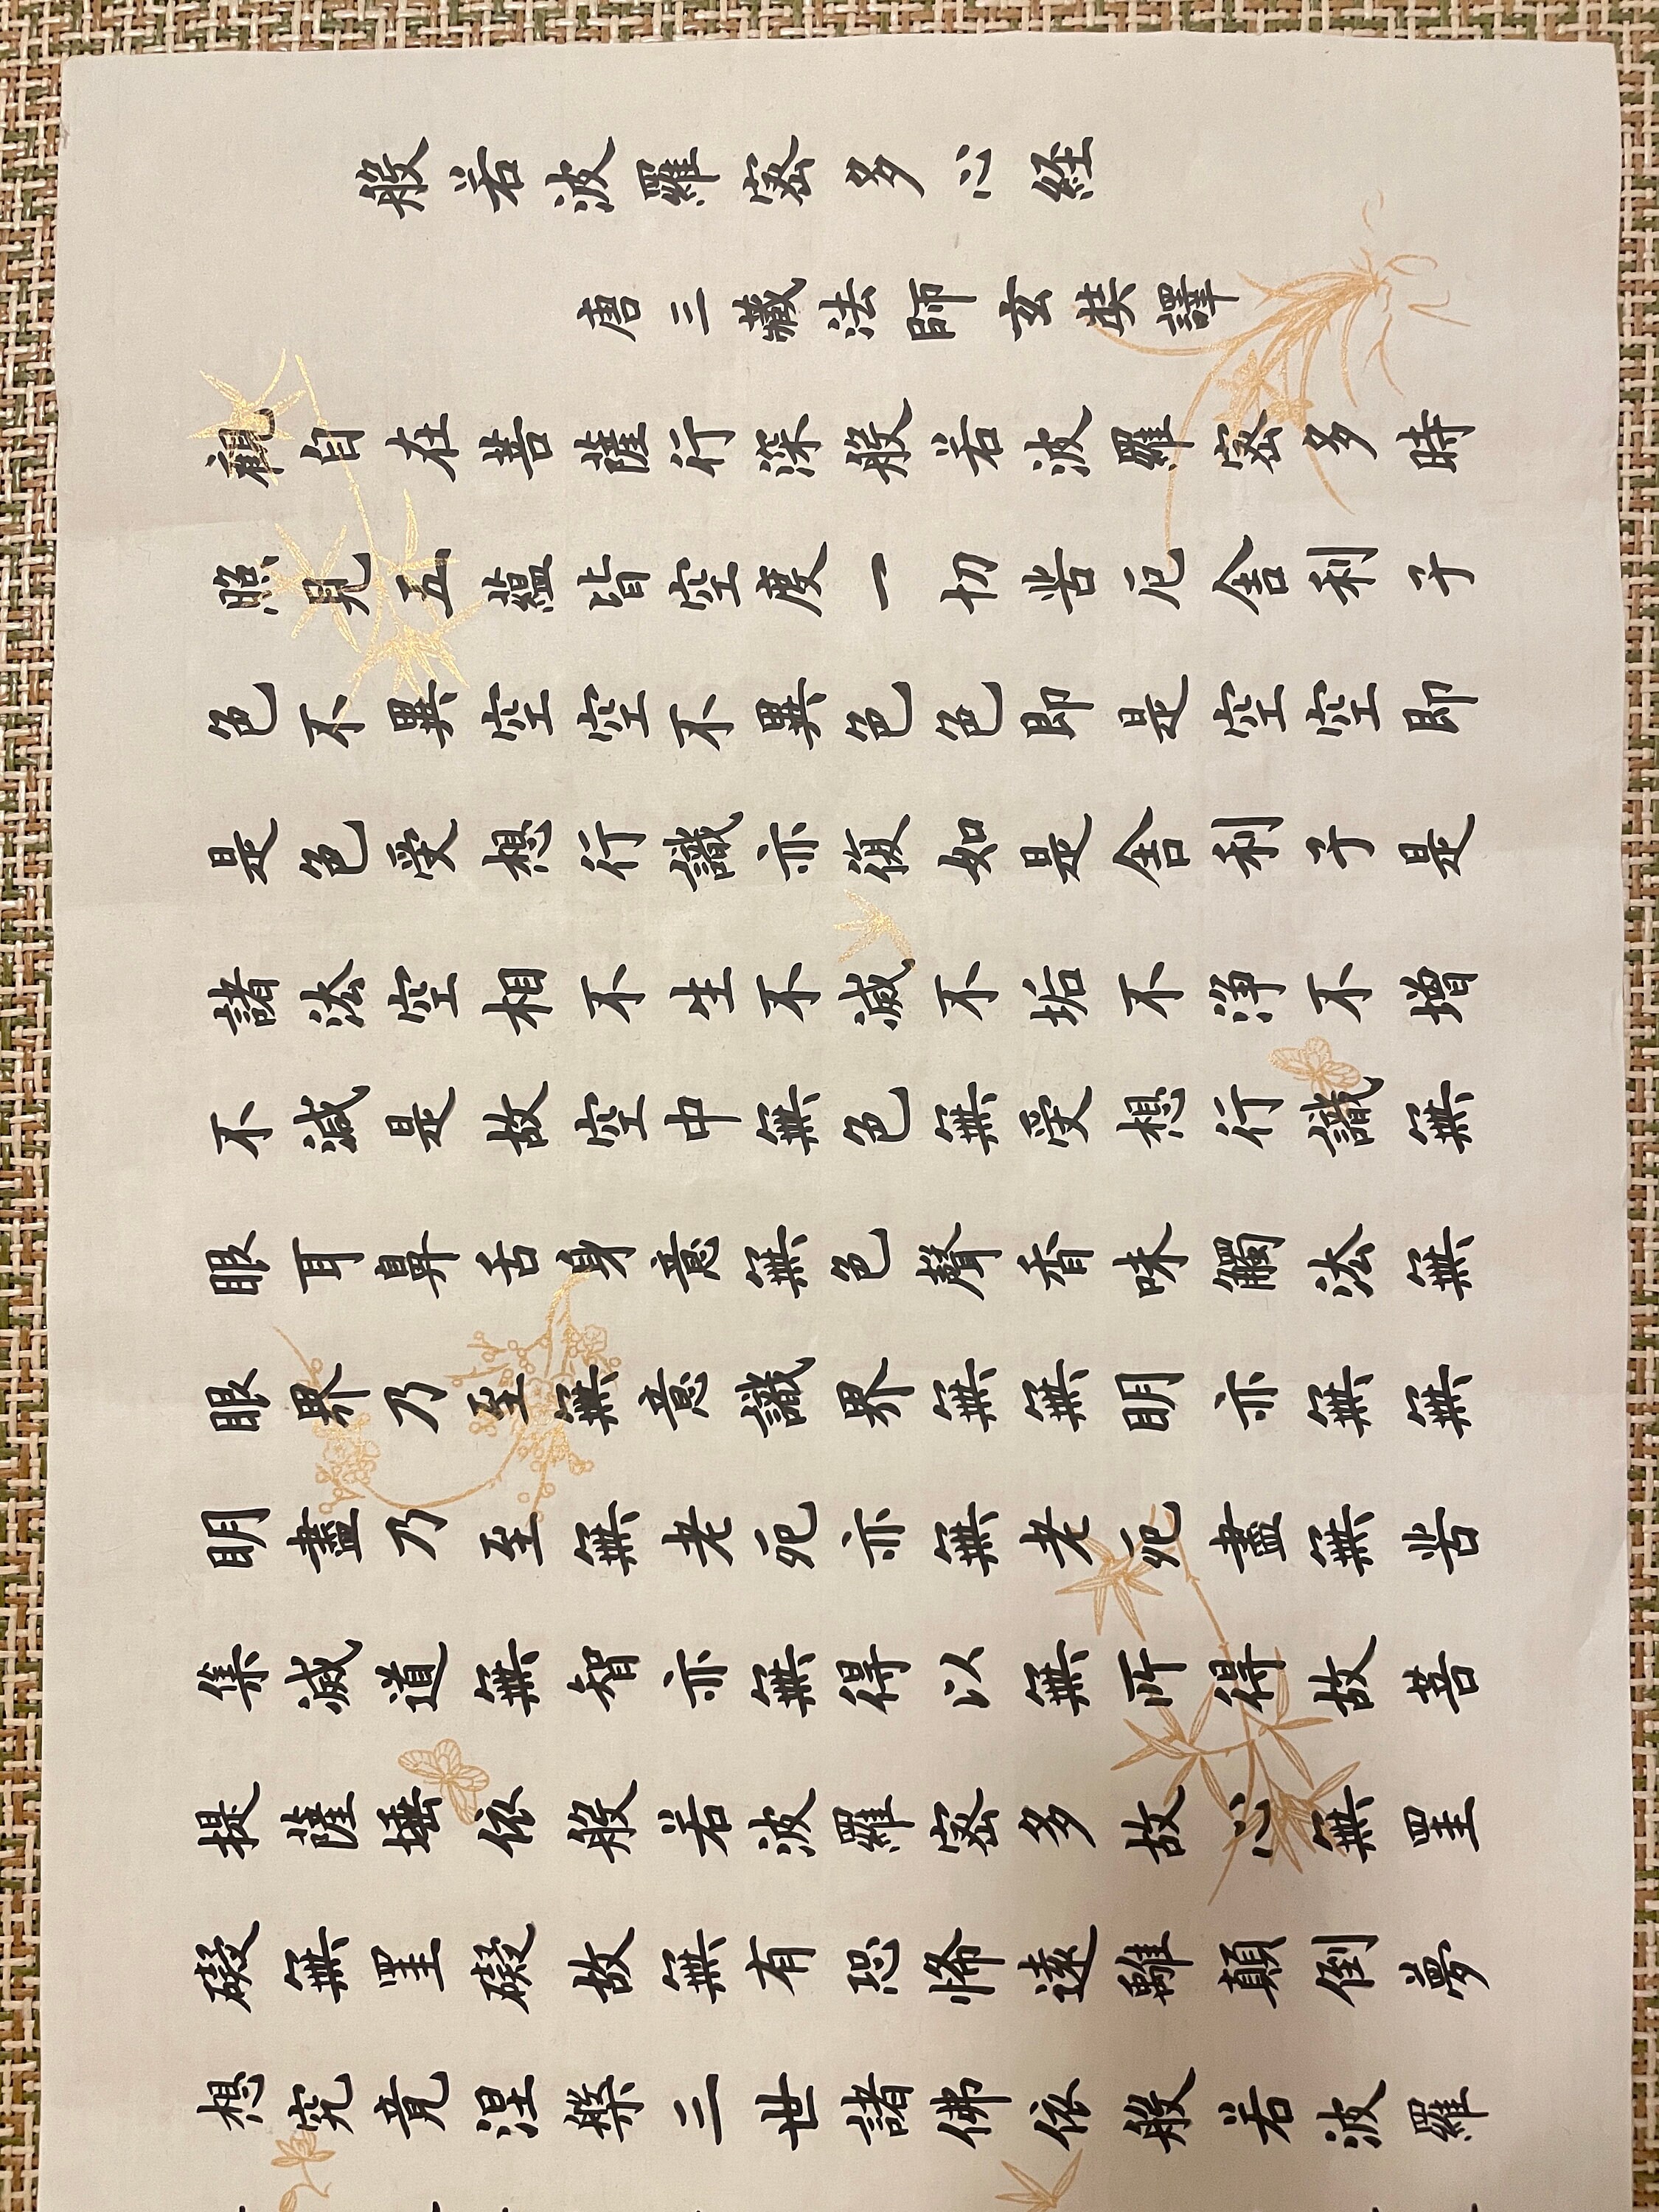 般若波羅密多心経
唐三藏法師玄奘譯
觀自在菩薩行深般若波羅密多時
照見五蘊皆空度一切苦厄舍利子
色不異空空不異色色即是空空即
是色受想行識亦復如是舍利子是
諸法空相不生不滅不垢不淨不增
不減是故空中無色無受想行識無
眼耳鼻舌身意無色聲香味觸法無
眼界乃至無意識界無無明亦無無
明盡乃至無老死亦無老死盡無苦
集滅道無智亦無得以無所得故菩
提薩埵依般若波羅密多故心無罣
礙無罣礙故無有恐怖遠離顛倒夢
想究竟涅槃三世諸佛依般若波羅